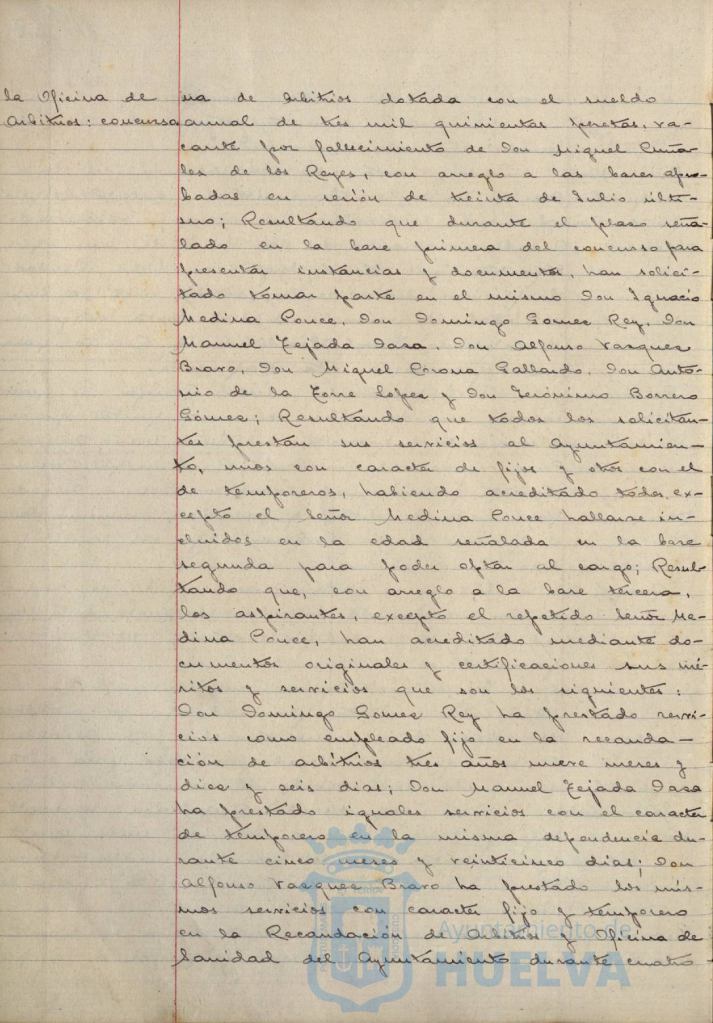 la Oficina de
Arbitrios: concurso
na de Arbitrios dotada con el sueldo
anual de tres mil quinientas pesetas, va-
cante por fallecimiento de Don Miguel Puña-
les de los Reyes, con arreglo a las bases apro-
badas en sesión de treinta de Julio últi-
mo; Resultando que durante el plazo seña-
lado en la base primera del concurso para
presentar instancias y documentos, han solici-
tado tomar parte en el mismo Don Ignacio
Medina Ponce, Don Domingo Gomez Rey, Don
Manuel Tejada Dasa, Don Alfonso Vazquez
Bravo, Don Miguel Corona Gallardo, Don Anto-
nio de la Torre Lopez y Don Gerónimo Borrero
Gómez; Resultando que todos los solicitan-
tes prestan sus servicios al Ayuntamien-
to, unos con caracter de fijos y otros con el
de temporeros, habiendo acreditado todos, ex-
cepto el Señor Medina Ponce hallarse in-
cluidos en la edad señalada en la base
segunda para poder optar al cargo; Resul-
tando que, con arreglo a la base tercera,
los aspirantes, excepto el repetido Señor Me-
dina Ponce, han acreditado mediante do-
cumentos originales y certificaciones sus mé-
ritos y servicios que son los siguientes:
Don Domingo Gomez Rey ha prestado servi-
cios como empleado fijo en la recauda-
ción de arbitrios tres años nueve meses y
diez y seis dias; Don Manuel Tejada Dasa
ha prestado iguales servicios con el caracter
de temporero en la misma dependencia du-
rante cinco meses y veinticinco dias; Don
Alfonso Vazquez Bravo ha prestado los mis-
mos servicios con caracter fijo y temporero
en la Recaudación de Arbitrios y Oficina de
Sanidad del Ayuntamiento durante cuatro
Ayuntamiento de
HUELVA